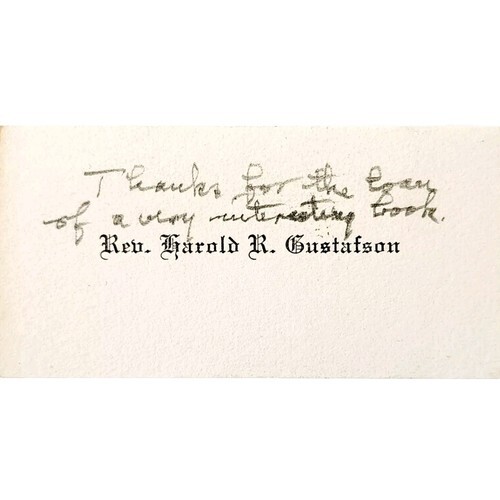 Thanks for the loan
of a very interesting book.
Rev. Harold R. Gustafson